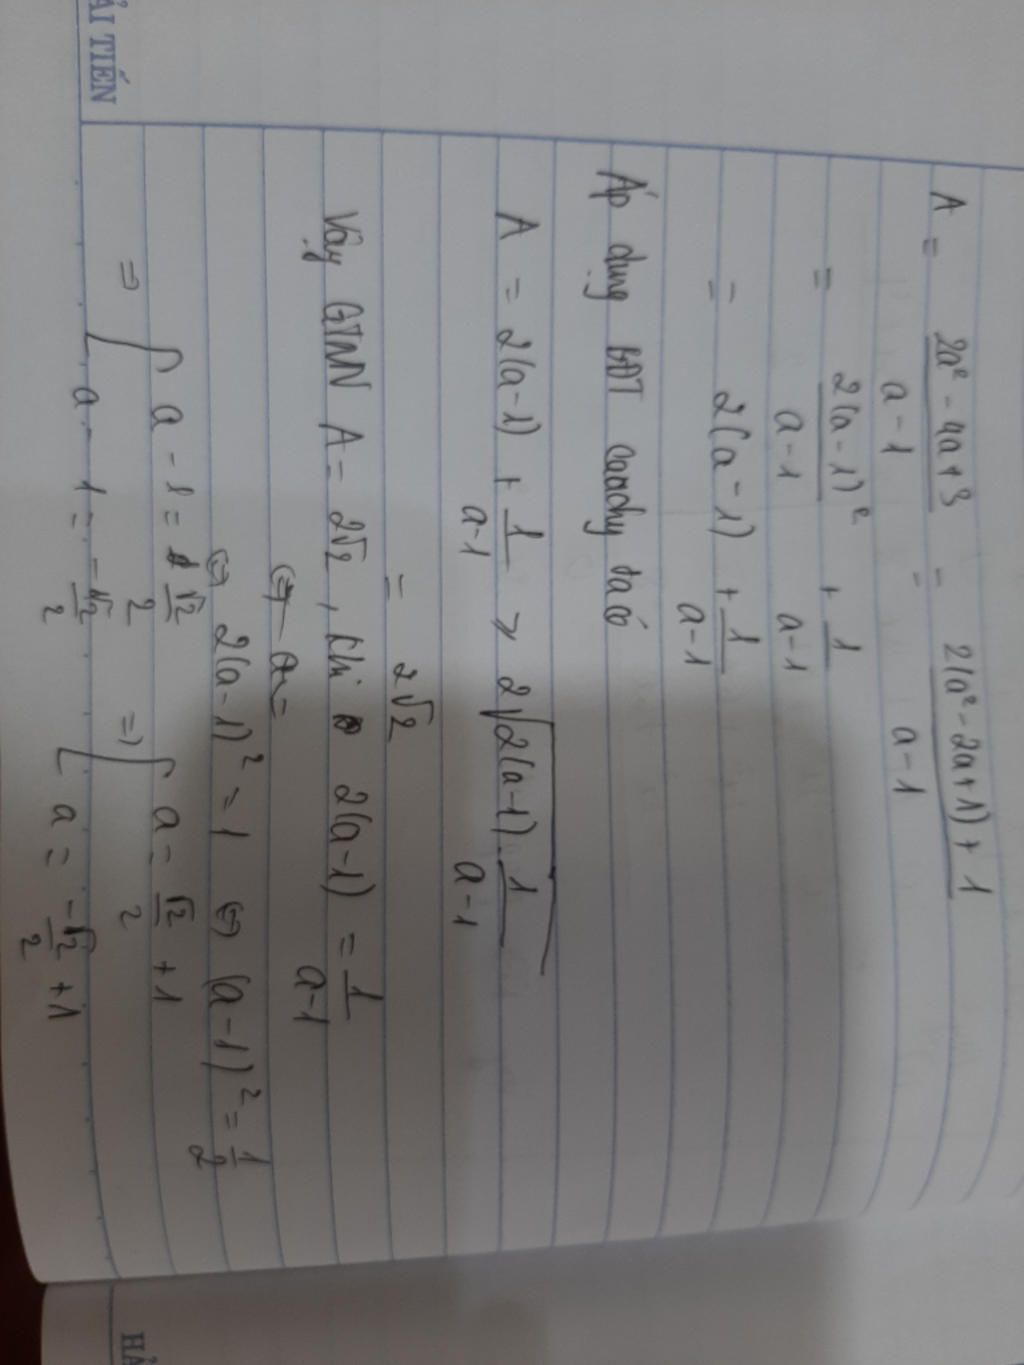 ẢI TIẾN
A = 2a² - 4a + 3 / a - 1 = 2(a² - 2a + 1) + 1 / a - 1
= 2(a - 1)² / a - 1 + 1 / a - 1
= 2(a - 1) + 1 / a - 1
Áp dụng BĐT Cauchy ta có
A = 2(a - 1) + 1 / a - 1 ≥ 2√2(a - 1) . 1 / a - 1
= 2√2
Vậy GTNN A = 2√2, khi 2(a - 1) = 1 / a - 1
⇔ a =
⇔ 2(a - 1)² = 1 ⇔ (a - 1)² = 1 / 2
⇒ [ a - 1 = √2 / 2 ⇒ [ a = √2 / 2 + 1
a - 1 = -√2 / 2 a = -√2 / 2 + 1
HẢ